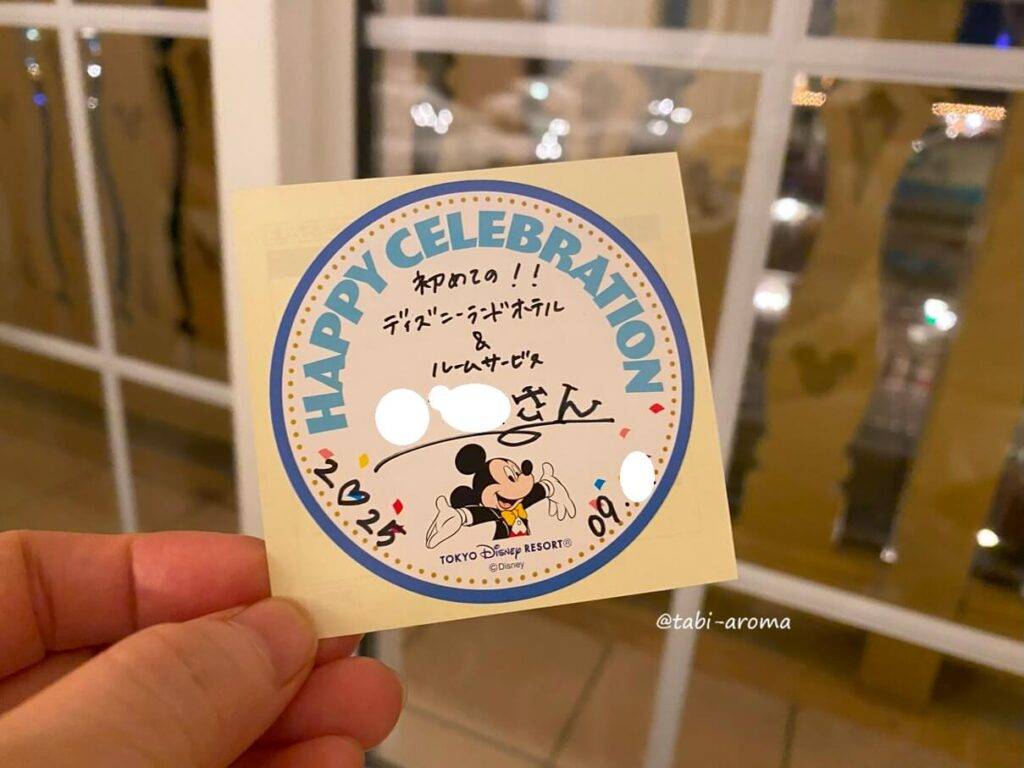 HAPPY CELEBRATION
初めての!!
ディズニーランドホテル
&
ルームサービス
さん
2♡25
09.
TOKYO Disney RESORT®
©Disney
@tabi-aroma